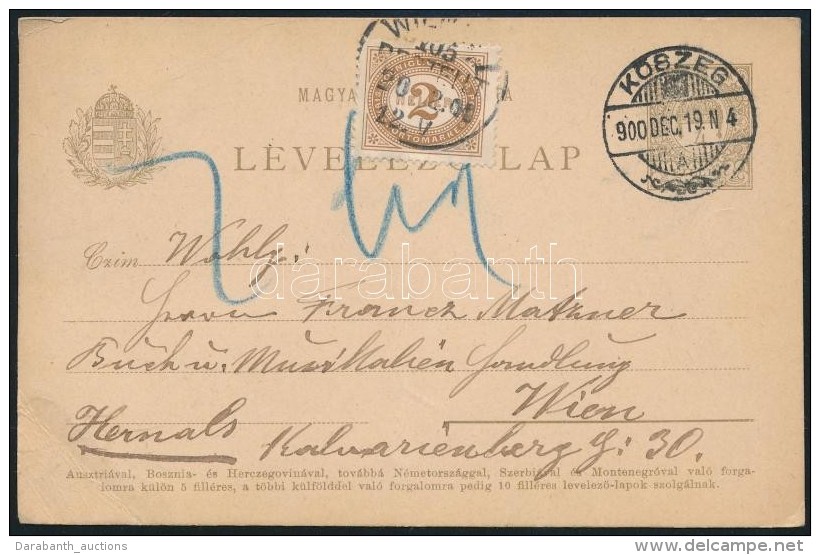 WIEN
105
2
HELLER
PORTOMARKE
KŐSZEG
900 DEC. 19. N 4
A
MAGYAR
LEVELEZŐ-LAP
Czim Wohlg:
Herrn Francz Matzner
Buch u. Musikalien Handlung
Wien
Hernals Kalvarienberg G: 30.
darabanth
Ausztriával, Bosznia- és Herczegovinával, továbbá Németországgal, Szerbiával és Montenegróval való forga-
lomra külön 5 filléres, a többi külfölddel való forgalomra pedig 10 filléres levelező-lapok szolgálnak.
Darabanth_auctions
delcampe.net